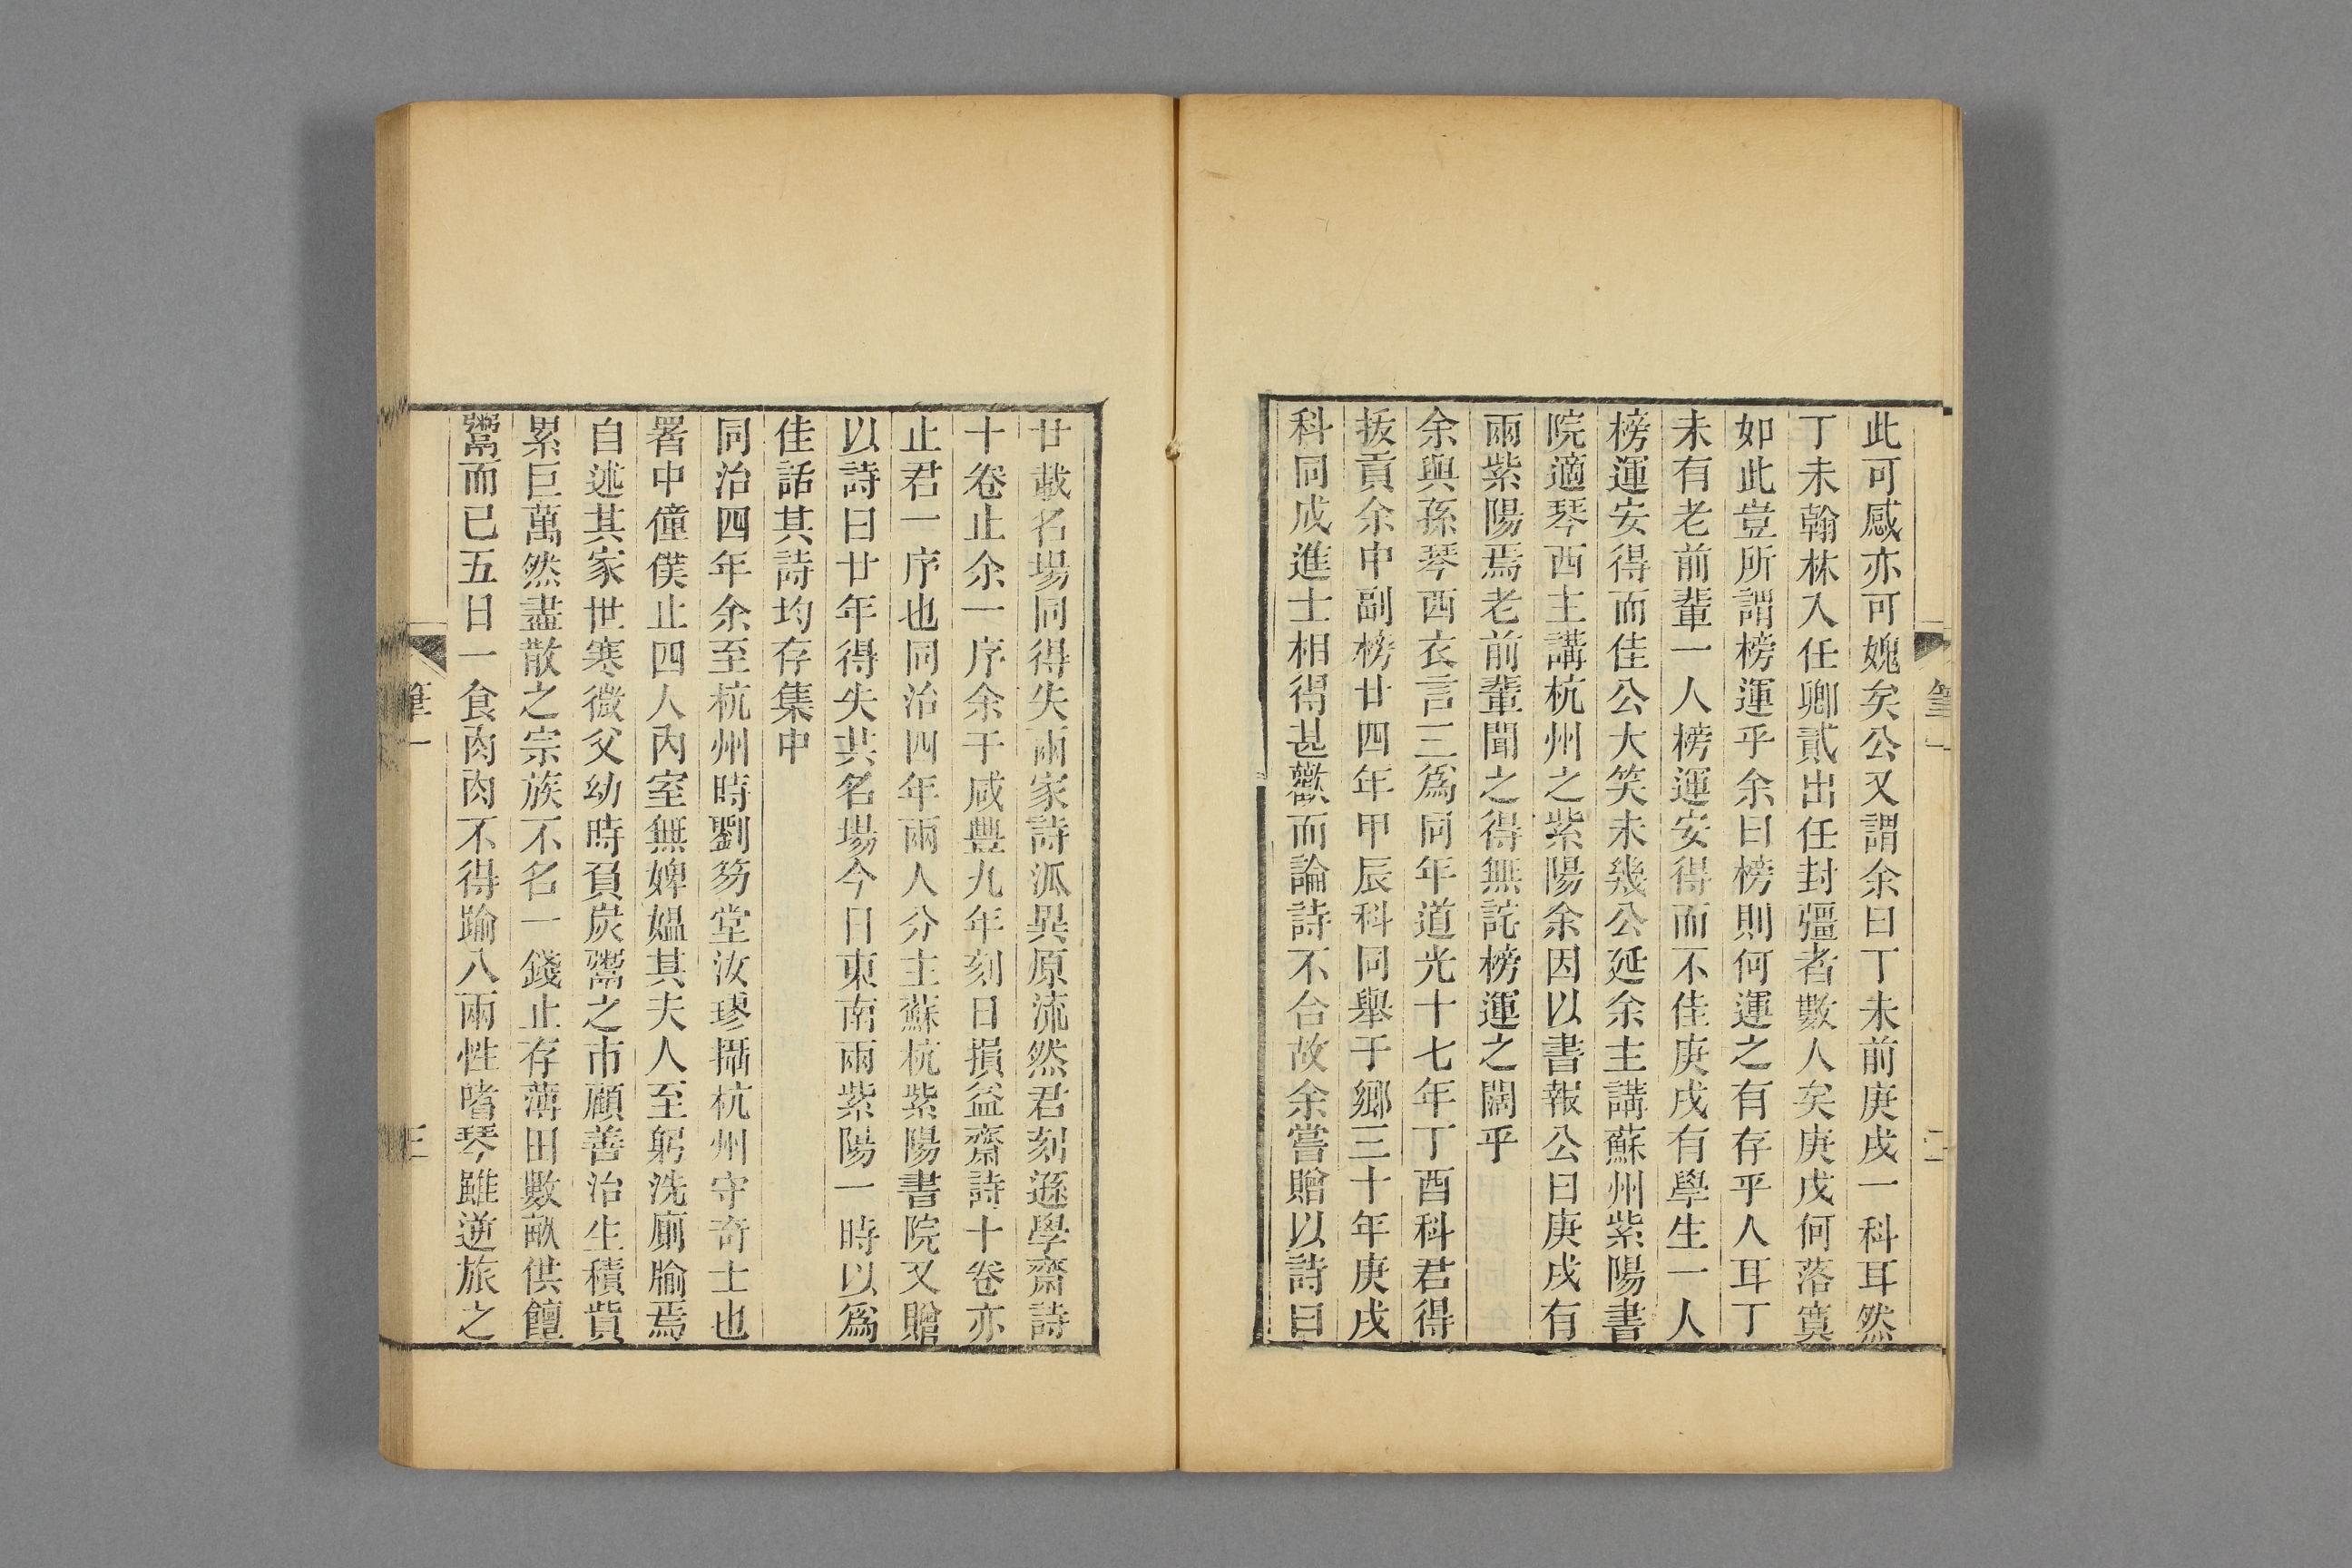 此可感亦可媿矣公又謂余曰丁未前庚戌一科耳然
丁未翰林入任卿貳出任封疆者數人矣庚戌何落寞
如此豈所謂榜運乎余曰榜則何運之有存乎人耳丁
未有老前輩一人榜運安得而不佳庚戌有學生一人
榜運安得而佳公大笑未幾公延余主講蘇州紫陽書
院適琴西主講杭州之紫陽余因以書報公曰庚戌有
兩紫陽焉老前輩聞之得無詫榜運之闊乎
余與孫琴西衣言三爲同年道光十七年丁酉科君得
拔貢余中副榜廿四年甲辰科同舉于鄉三十年庚戌
科同成進士相得甚歡而論詩不合故余嘗贈以詩曰
筆一
二
廿載名場同得失兩家詩派異原流然君刻遜學齋詩
十卷止余一序余于咸豐九年刻日損益齋詩十卷亦
止君一序也同治四年兩人分主蘇杭紫陽書院又贈
以詩曰廿年得失共名場今日東南兩紫陽一時以爲
佳話其詩均存集中
同治四年余至杭州時劉笏堂汝璆攝杭州守奇士也
署中僮僕止四人內室無婢媼其夫人至躬洗廁牏焉
自述其家世寒微父幼時負炭鬻之市顧善治生積貲
累巨萬然盡散之宗族不名一錢止存薄田數畝供饘
鬻而已五日一食肉肉不得踰八兩性嗜琴雖逆旅之
筆一
三